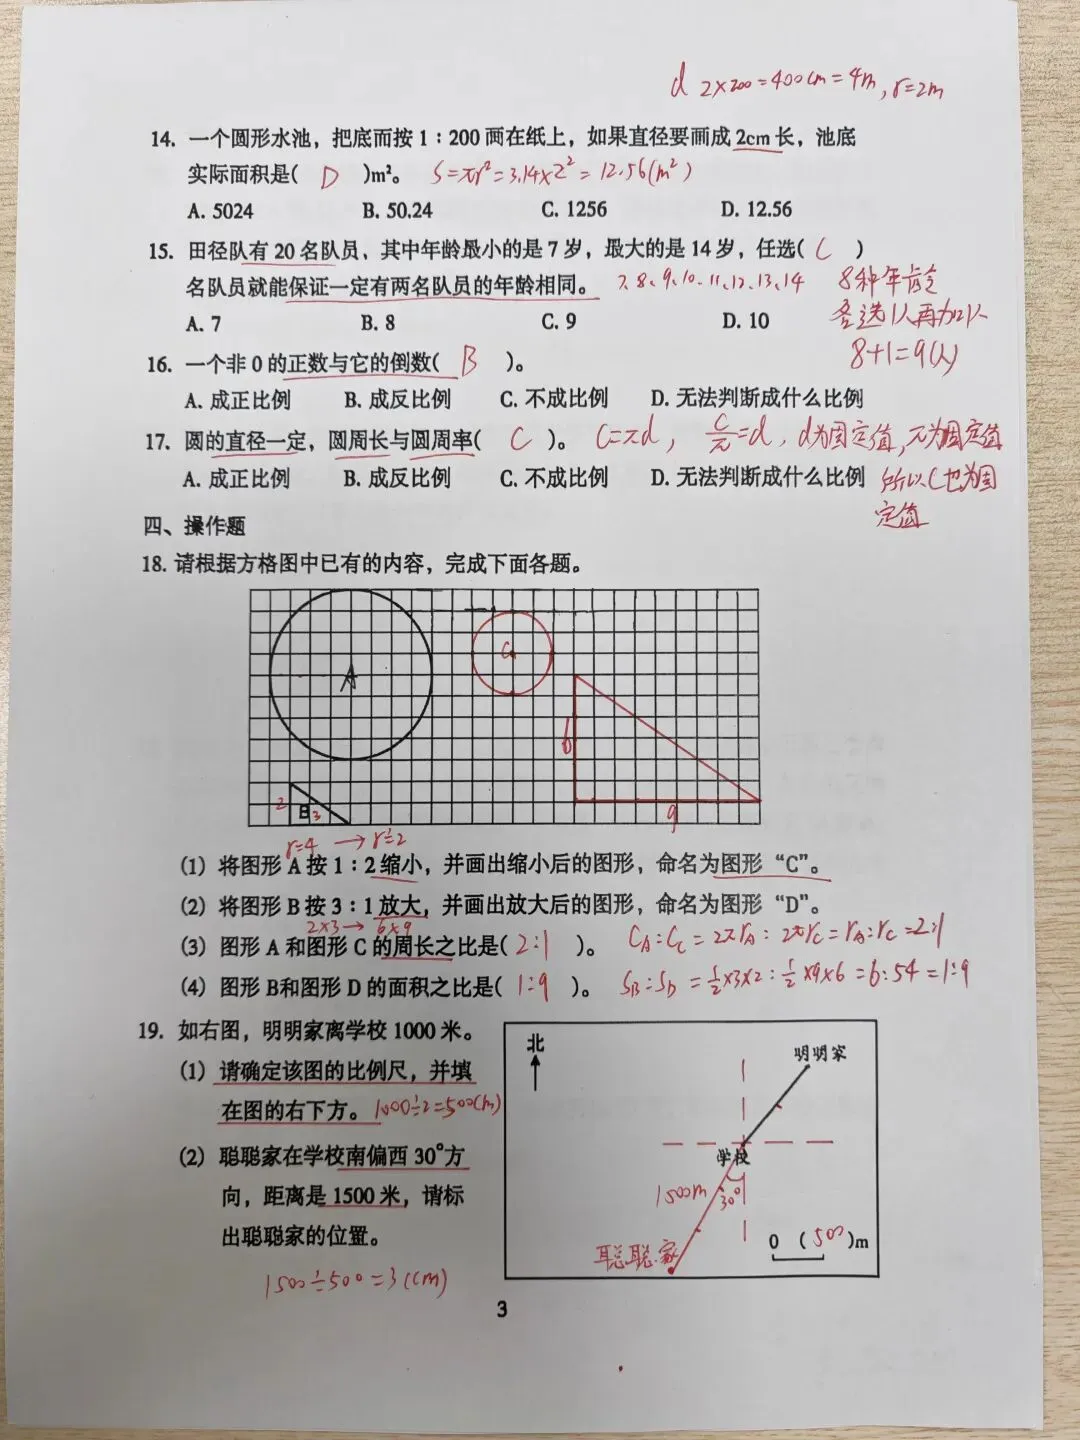 d 2×200=400cm=4m, r=2m
14. 一个圆形水池，把底而按 1：200 两在纸上，如果直径要画成 2cm 长，池底
实际面积是( D )m²。 S=πr²=3.14×2²=12.56(m²)
A. 5024 B. 50.24 C. 1256 D. 12.56
15. 田径队有 20 名队员，其中年龄最小的是 7 岁，最大的是 14 岁，任选( C )
名队员就能保证一定有两名队员的年龄相同。 7、8、9、10、11、12、13、14 8种年龄
A. 7 B. 8 C. 9 D. 10 各选1人再加1人
8+1=9(人)
16. 一个非 0 的正数与它的倒数( B )。
A. 成正比例 B. 成反比例 C. 不成比例 D. 无法判断成什么比例
17. 圆的直径一定，圆周长与圆周率( C )。 C=πd, C/π=d, d为固定值, π为固定值
A. 成正比例 B. 成反比例 C. 不成比例 D. 无法判断成什么比例 所以C也为固
定值
四、操作题
18. 请根据方格图中已有的内容，完成下面各题。
A C
6
2 B 3 9
r=4 → r=2
(1) 将图形 A 按 1：2 缩小，并画出缩小后的图形，命名为图形 “C”。
(2) 将图形 B 按 3：1 放大，并画出放大后的图形，命名为图形 “D”。
2×3→ 6×9
(3) 图形 A 和图形 C 的周长之比是( 2:1 )。 CA:CC=2πrA:2πrC=rA:rC=2:1
(4) 图形 B和图形 D 的面积之比是( 1:9 )。 SB:SD=½×3×2:½×9×6=6:54=1:9
19. 如右图，明明家离学校 1000 米。
(1) 请确定该图的比例尺，并填
在图的右下方。 1000÷2=500(m)
(2) 聪聪家在学校南偏西 30°方
向，距离是 1500 米，请标
出聪聪家的位置。
1500÷500=3(cm)
北
明明家
学校
1500m 30°
聪聪家
0 ( 500 )m
3